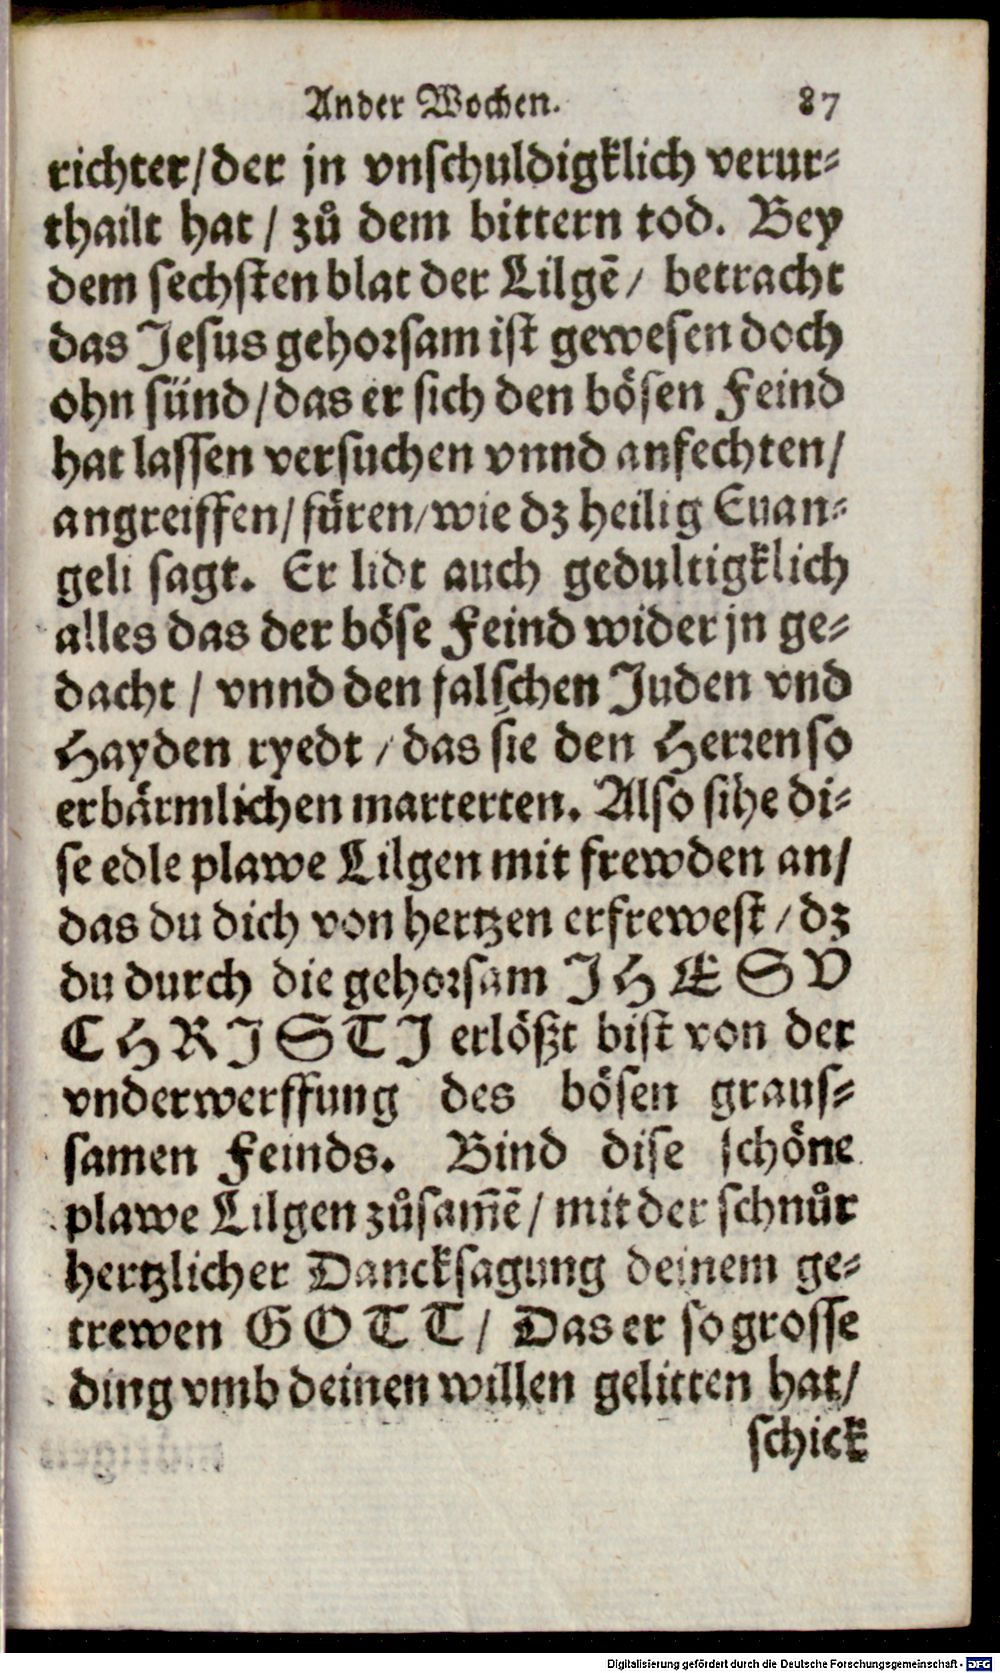 Ander Wochen. 87
richter/der jn vnschuldigklich verur⸗
thailt hat / zů dem bittern tod. Bey
dem sechsten blat der Lilgẽ / betracht
das Jesus gehorsam ist gewesen doch
ohn sünd/das er sich den bösen Feind
hat lassen versuchen vnnd anfechten/
angreiffen/füren/wie dz heilig Euan⸗
geli sagt. Er lidt auch gedultigklich
alles das der böse Feind wider jn ge⸗
dacht / vnnd den falschen Juden vnd
Hayden ryedt / das sie den Herren so
erbärmlichen marterten. Also sihe di⸗
se edle plawe Lilgen mit frewden an/
das du dich von hertzen erfrewest / dz
du durch die gehorsam JHESV
CHRJSTJ erlößt bist von der
vnderwerffung des bösen graus⸗
samen Feinds. Bind dise schöne
plawe Lilgen zůsam̃ẽ / mit der schnůr
hertzlicher Dancksagung deinem ge⸗
trewen GOTT / Das er so grosse
ding vmb deinen willen gelitten hat/
schick
Digitalisierung gefördert durch die Deutsche Forschungsgemeinschaft - DFG